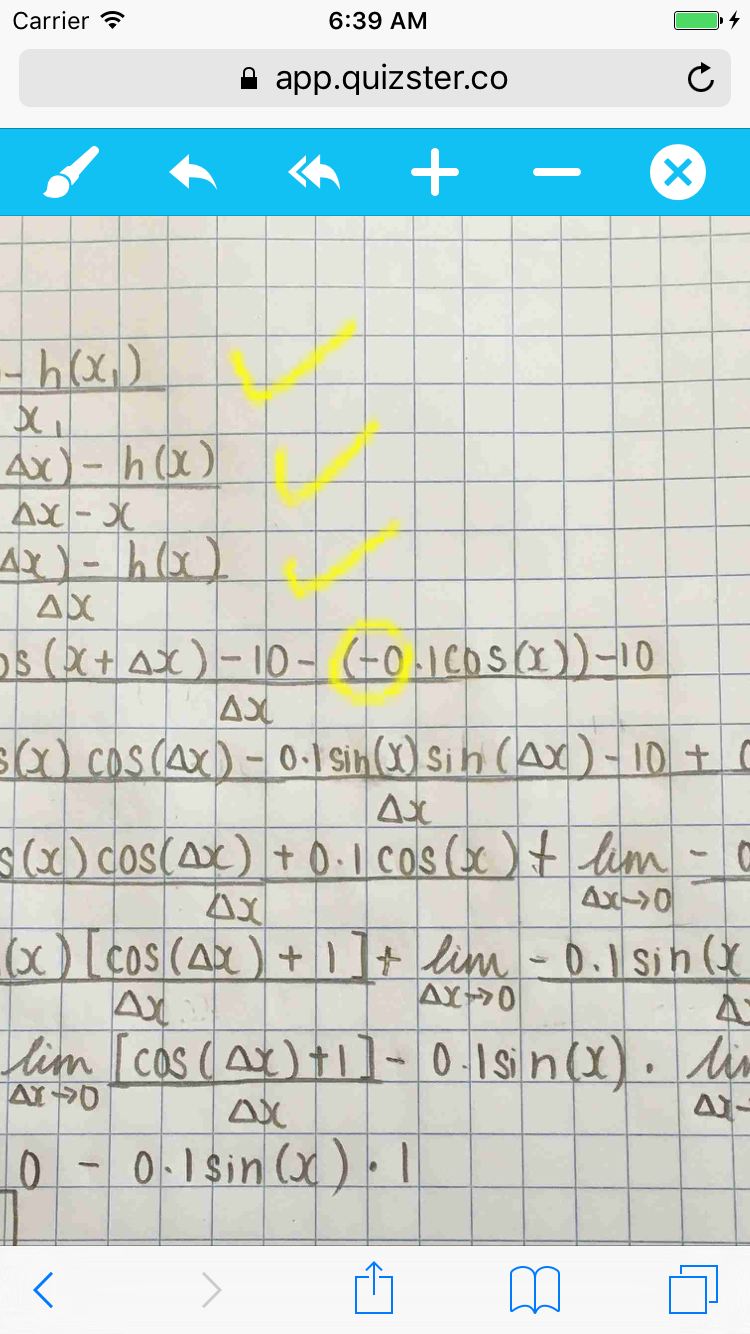 Carrier 6:39 AM
app.quizster.co
- h(x₁)
x₁
Δx) - h(x)
Δx - x
Δx) - h(x)
Δx
os(x + Δx) - 10 - (-0.1cos(x)) - 10
Δx
s(x) cos(Δx) - 0.1sin(x) sin(Δx) - 10 +
Δx
s(x) cos(Δx) + 0.1 cos(x) + lim - 0
Δx Δx→0
(x) [cos(Δx) + 1] + lim - 0.1 sin(x
Δx Δx→0 Δx
lim [cos(Δx) + 1] - 0.1sin(x) · lim
Δx→0 Δx Δx→
0 - 0.1sin(x) · 1